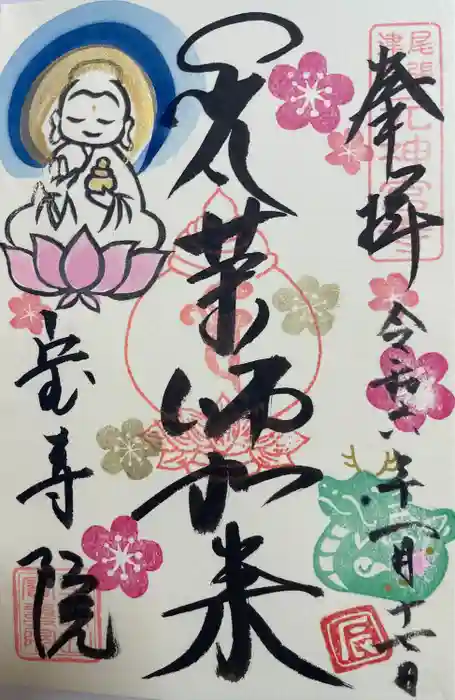 奉拝
尾張
津島
元神宮寺
令和六年一月十七日
辰
薬師如来
宝寿院